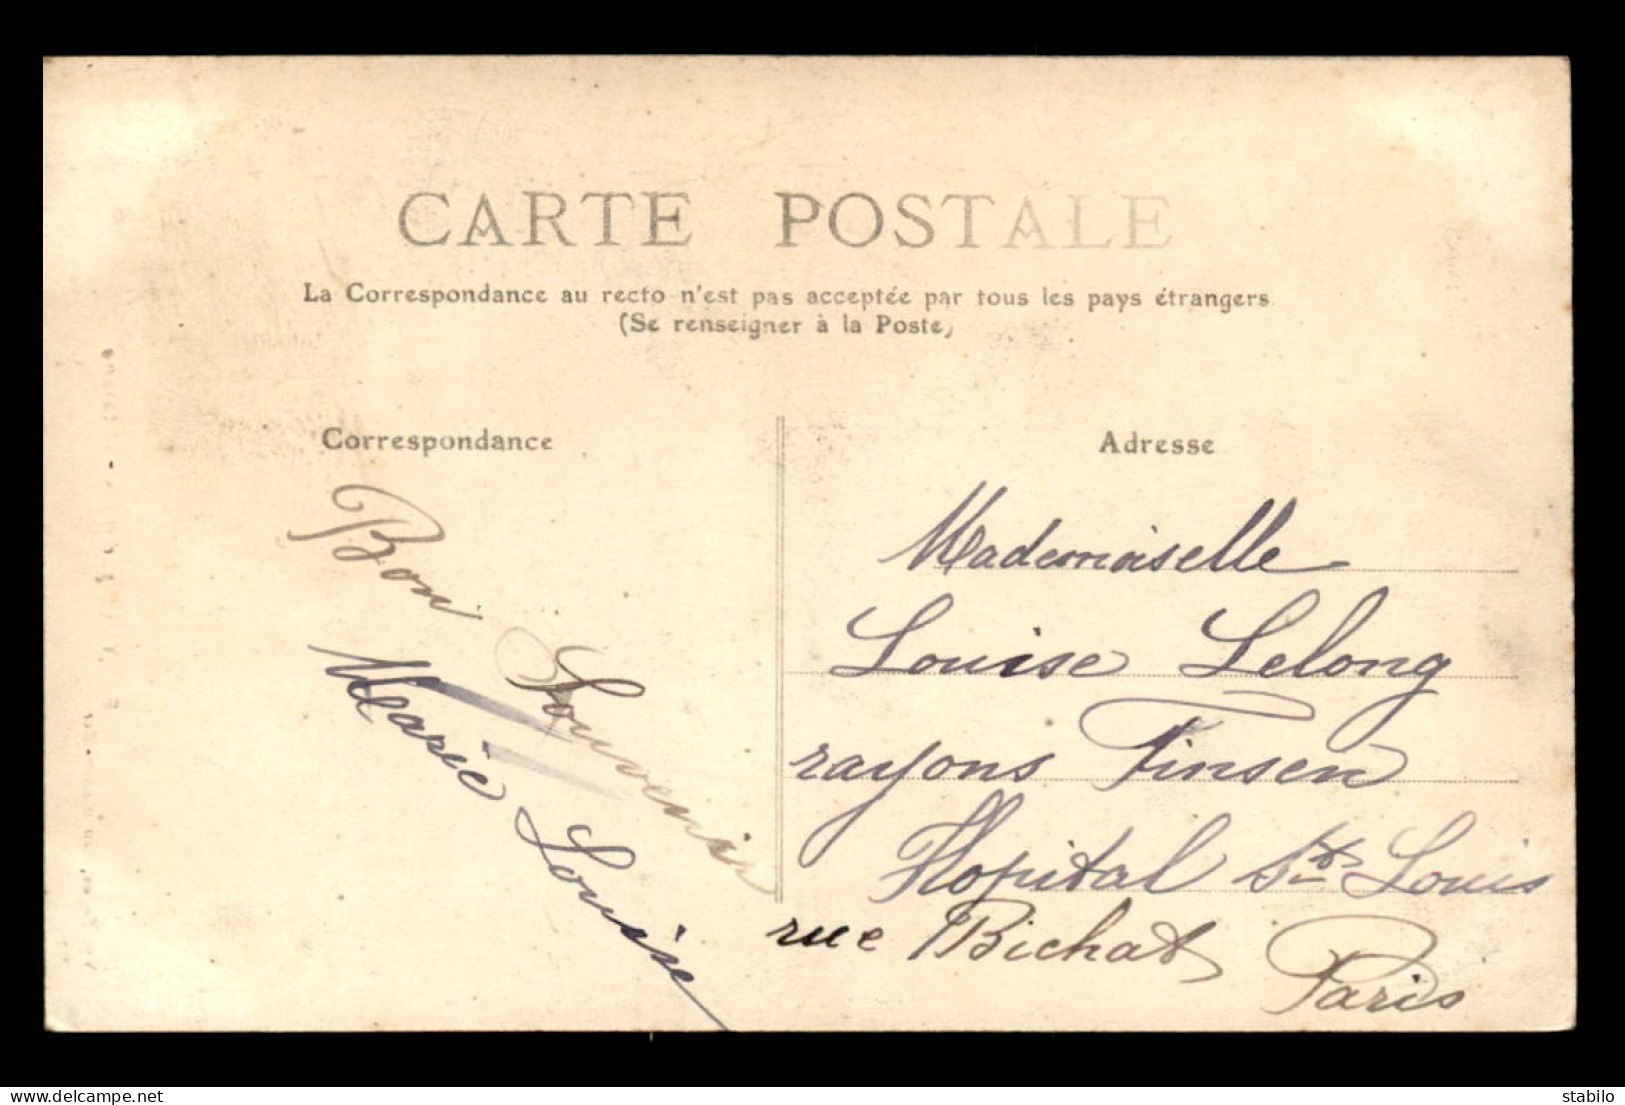 CARTE POSTALE
La Correspondance au recto n'est pas acceptée par tous les pays étrangers
(Se renseigner à la Poste)
Correspondance
Bon Souvenir
Marie Louise
Adresse
Mademoiselle
Louise Lelong
rayons Finsen
Hopital St Louis
rue Bichat Paris
delcampe.net
stabilo